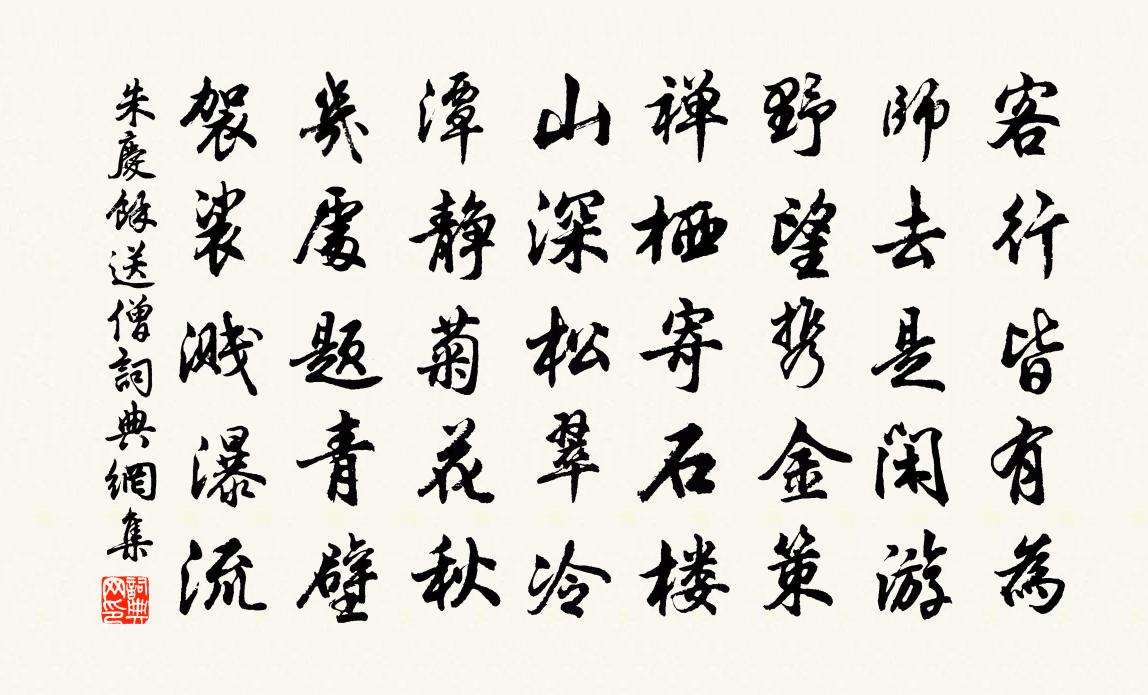 客行皆有為
師去是闲游
野望携金策
禅栖寄石楼
山深松翠冷
潭静菊花秋
幾處题青壁
袈裟溅瀑流
朱慶餘送僧詞典網集
詞典網印